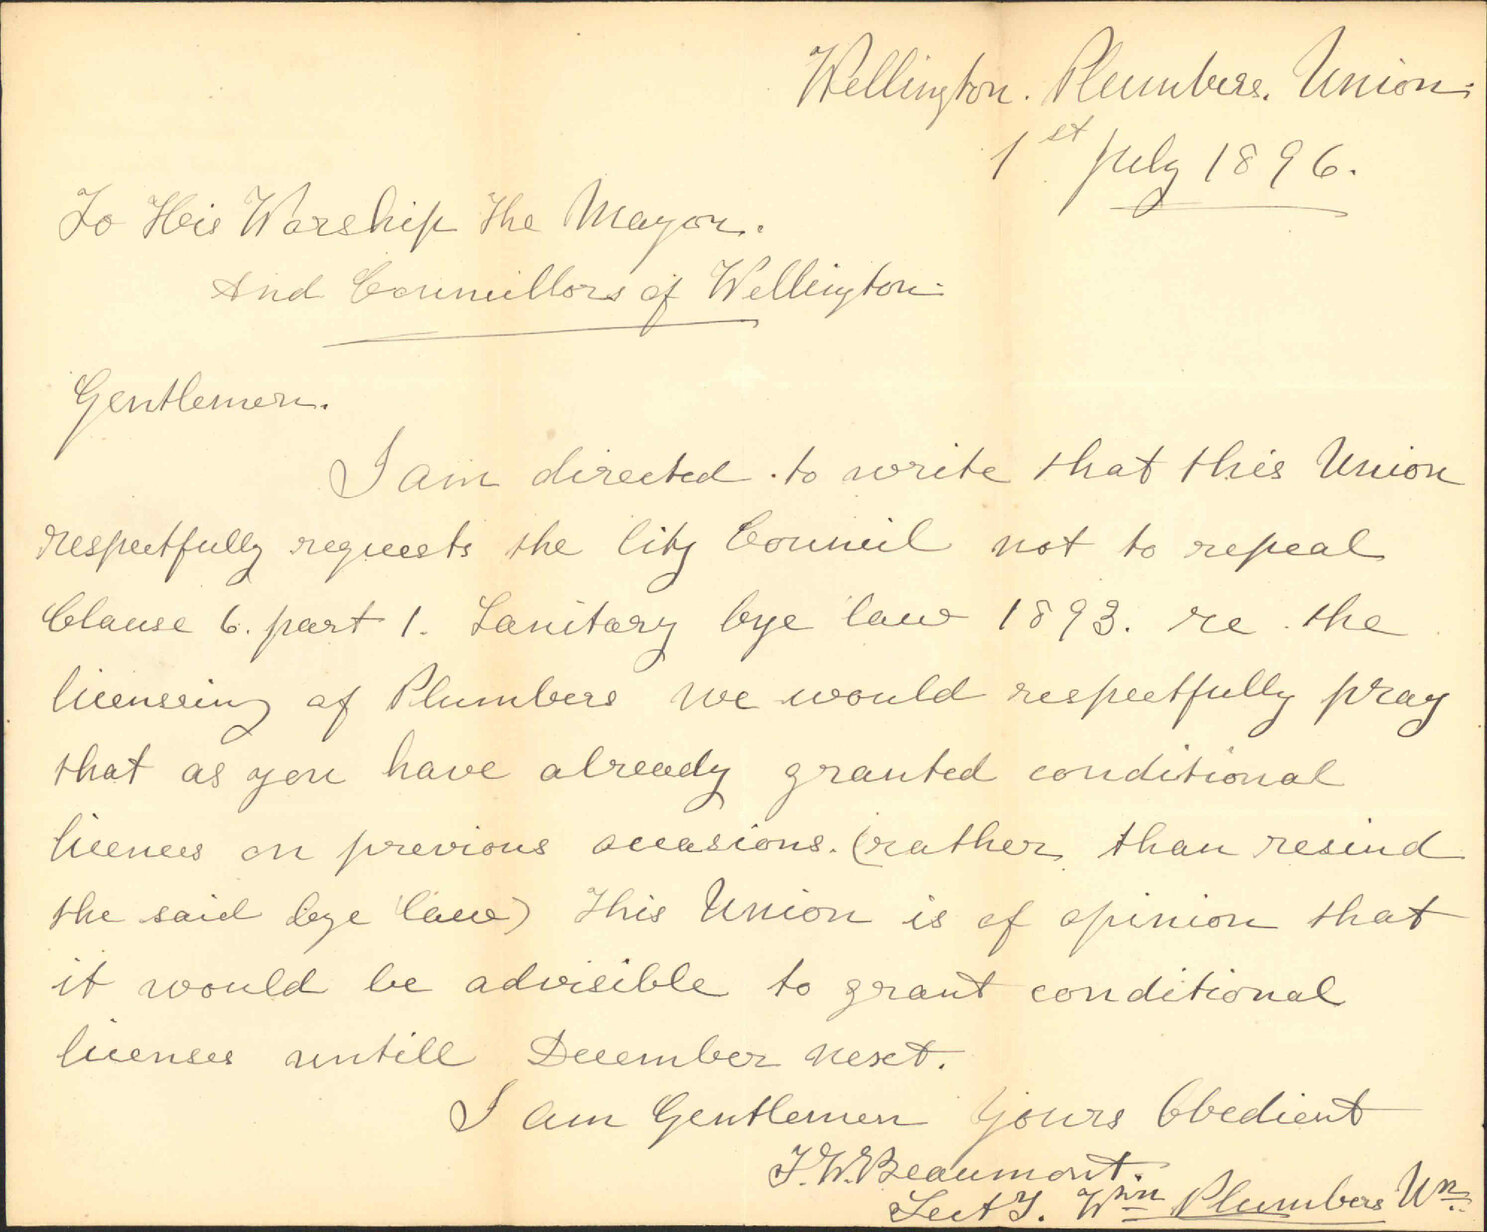 Wellington. Plumbers. Union.
1st July 1896.
To His Worship The Mayor.
And Councillors of Wellington.
Gentlemen.
I am directed to write that this Union
respectfully requests the City Council not to repeal
Clause 6. part 1. Sanitary bye law 1893. re the
licenseing of Plumbers we would respectfully pray
that as you have already granted conditional
licences on previous occasions. (rather than resind
the said bye law) This Union is of opinion that
it would be advisible to grant conditional
licenses untill December next.
I am Gentlemen Yours Obedient
F. W. Beaumont.
Secty. Wtn Plumbers Un.